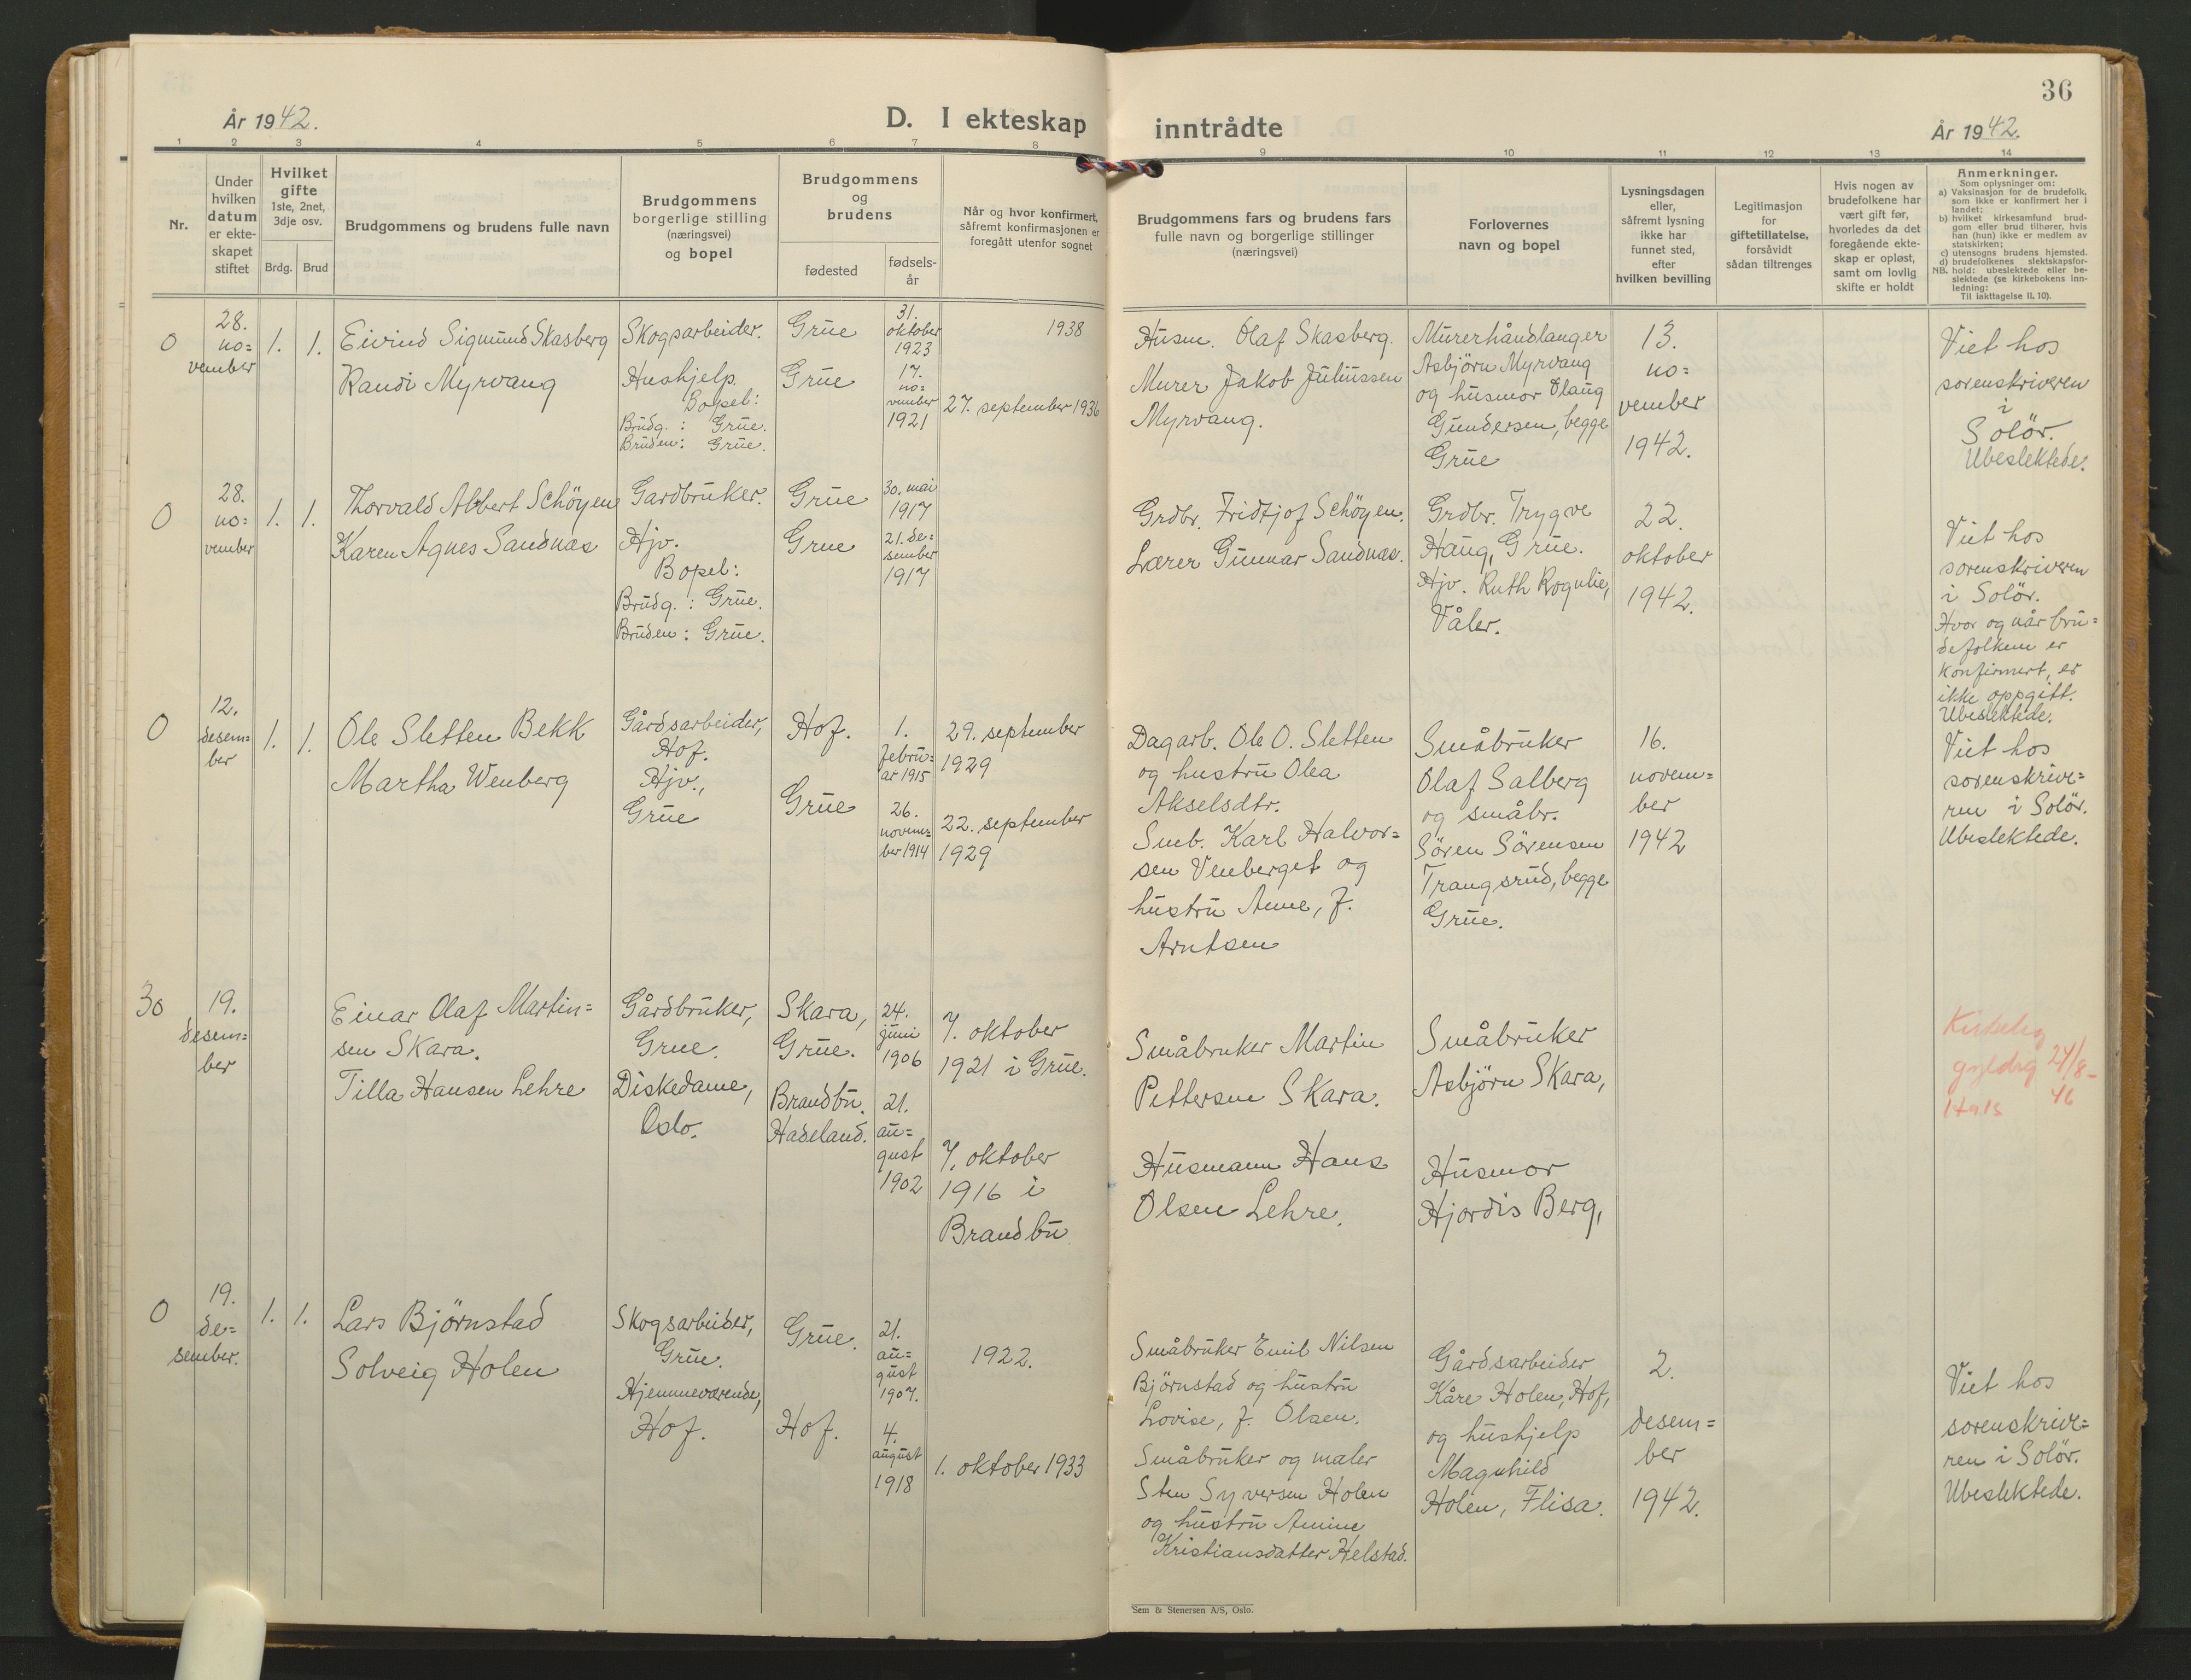 36
År 1942.
D. I ekteskap
inntrådte
År 1942.
1 2 3 4 5 6 7 8 9 10 11 12 13 14
Nr.
Under
hvilken
datum
er ekte-
skapet
stiftet
Hvilket
gifte
1ste, 2net,
3dje osv.
Brdg.
Brud
Brudgommens og brudens fulle navn
Brudgommens
borgerlige stilling
(næringsvei)
og bopel
Brudgommens
og
brudens
fødested
fødsels-
år
Når og hvor konfirmert,
såfremt konfirmasjonen er
foregått utenfor sognet
Brudgommens fars og brudens fars
fulle navn og borgerlige stillinger
(næringsvei)
Forlovernes
navn og bopel
Lysningsdagen
eller,
såfremt lysning
ikke har
funnet sted,
efter
hvilken bevilling
Legitimasjon
for
giftetillatelse,
forsåvidt
sådan tiltrenges
Hvis nogen av
brudefolkene har
vært gift før,
hvorledes da det
foregående ekte-
skap er opløst,
samt om lovlig
skifte er holdt
Anmerkninger.
Som oplysninger om:
a) Vaksinasjon for de brudefolk,
som ikke er konfirmert her i
landet;
b) hvilket kirkesamfund brud-
gom eller brud tilhører, hvis
han (hun) ikke er medlem av
statskirken;
c) utensogns brudens hjemsted.
d) brudefolkenes slektskapsfor-
NB. hold: ubeslektede eller be-
slektede (se kirkebokens inn-
ledning:
Til iakttagelse II, 10).
0
28.
no=
vember
1.
1.
Eivind Sigmund Skasberg
Randi Myrvang
Skogsarbeider.
Hushjelp.
Bopel:
Brudg. : Grue.
Bruden: Grue.
Grue
Grue
31.
oktober
1923
17.
no=
vember
1921
1938
27. september 1936
Husm. Olaf Skasberg.
Murer Jakob Juliussen
Myrvang.
Murerhåndlanger
Asbjörn Myrvang
og husmor Olaug
Gundersen, begge
Grue
13.
no=
vember
1942.
Viet hos
sorenskriveren
i
Solör.
Ubeslektede.
0
28.
no=
vember
1.
1.
Thorvald Albert Schöyen
Karen Agnes Sandnas
Gardbruker.
Hjv.
Bopel:
Brudg. : Grue.
Bruden : Grue.
Grue
Grue
30. mai
1917
21. de=
sember
1917
Grdbr. Fridtjof Schöyen.
Lærer Gunnar Sandnas.
Grdbr. Trygve
Haug, Grue.
Hjv. Ruth Rognlie,
Våler.
22.
oktober
1942.
Viet hos
sorenskriveren
i Solör.
Hvor og når bru=
defolkene er
konfirmert, er
ikke oppgitt.
Ubeslektede.
0
12.
desem=
ber
1.
1.
Ole Sletten Bekk
Martha Wenberg
Gårdsarbeider,
Hof.
Hjv.,
Grue
Hof.
Grue
1.
febru=
ar 1915
26.
novem=
ber 1914
29. september
1929
22. september
1929
Dagarb. Ole O. Sletten
og hustru Olea
Akselsdtr.
Smb. Karl Halvor=
sen Venberget og
hustru Anne, f.
Arntsen
Småbruker
Olaf Salberg
og småbr.
Sören Sörensen
Trangsrud, begge
Grue.
16.
novem=
ber
1942
Viet hos
sorenskrive=
ren i Solör.
Ubeslektede.
30
19.
desem=
ber
Einar Olaf Martin=
sen Skara.
Tilla Hansen Lehre
Gårdbruker,
Grue.
Diskedame,
Oslo.
Skara,
Grue.
Brandbu.
Hadeland.
24.
juni
1906
21.
au=
gust
1902
7. oktober
1921 i Grue.
7. oktober
1916 i
Brandbu
Småbruker Martin
Pettersen Skara.
Husmann Hans
Olsen Lehre.
Småbruker
Asbjörn Skara,
Husmor
Hjordis Berg,
gyldig 24/8-
46
0
19.
de=
sember.
1.
1.
Lars Björnstad
Solveig Holen
Skogsarbeider,
Grue.
Hjemmeværende,
Hof.
Grue.
Hof.
21.
au=
gust
1907.
4.
august
1918
1922.
1. oktober 1933
Småbruker Emil Nilsen
Björnstad og hustru
Lovise, f. Olsen.
Småbruker og maler
Sten Syversen Holen
og hustru Amine
Kristiansdatter Helstad.
Gårdsarbeider
Kåre Holen, Hof,
og hushjelp
Magnhild
Holen, Flisa.
2.
desem=
ber
1942.
Viet hos
sorenskrive=
ren i Solör.
Ubeslektede.
Sem & Stenersen A/S, Oslo.